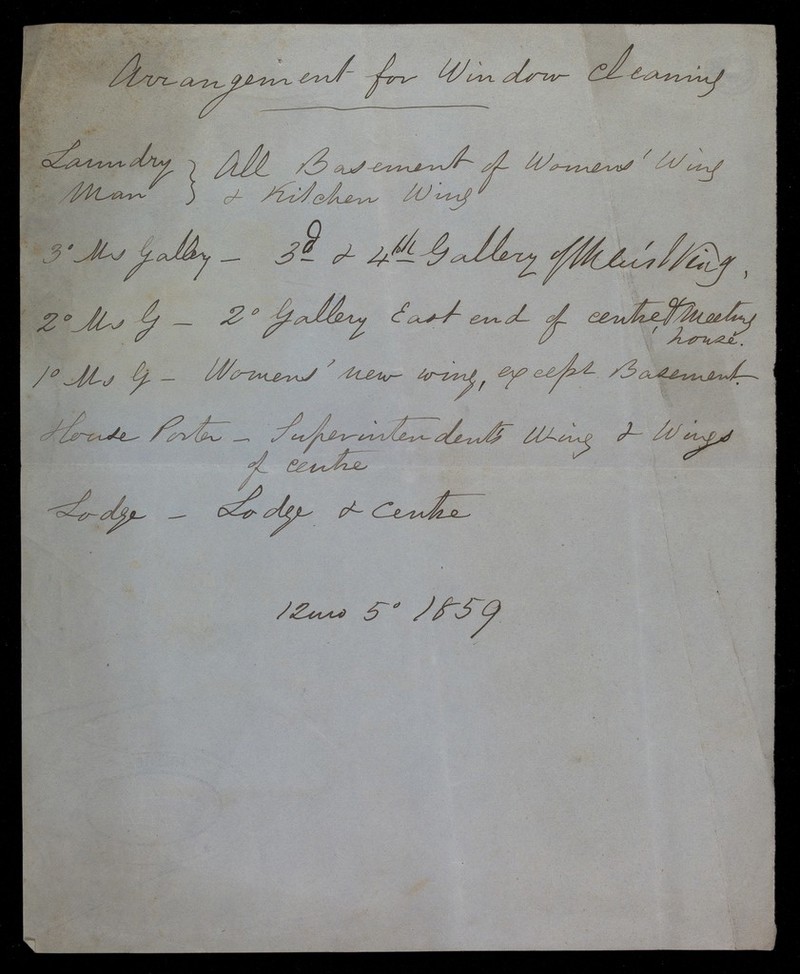 Arrangement for Window cleaning
Laundry } All Basement of Womens' Wing
Man & Kitchen Wing
3° Ms Gallery – 3d & 4th Gallery of Men's Wing,
2° Ms G – 2° Gallery East end of centre & Meeting
house.
1° Ms G – Womens' new wing, except Basement.
House Porter – Superintendents Wing & Wings
of centre
Lodge – Lodge & Centre
12mo 5° 1859